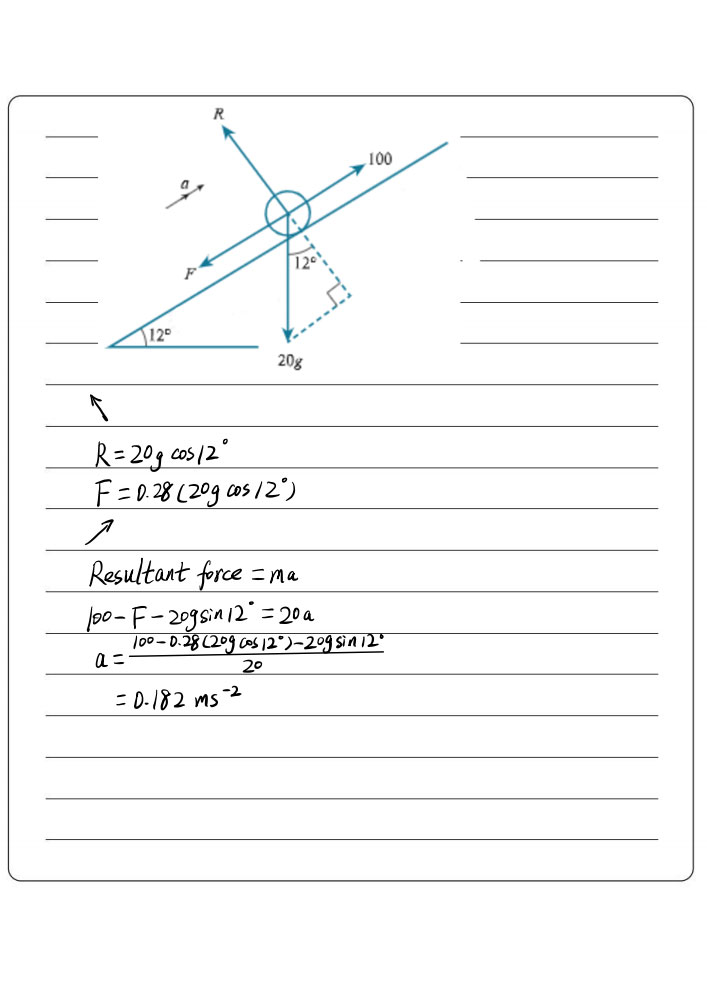 R
100
a
F
12°
12°
20g
R = 20g cos12°
F = 0.28(20g cos12°)
Resultant force = ma
100 - F - 20gsin12° = 20a
a = \frac{100 - 0.28(20g cos12°) - 20gsin12°}{20}
= 0.182 ms⁻²